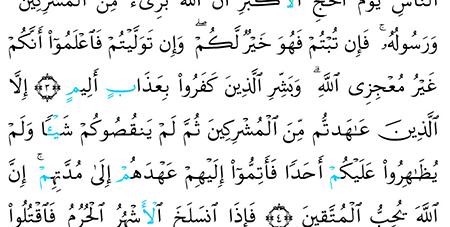 ٱلنَّاسِ يَوْمَ ٱلْحَجِّ ٱلْأَكْبَرِ أَنَّ ٱللَّهَ بَرِىٓءٌ مِّنَ ٱلْمُشْرِكِينَ
وَرَسُولُهُۥ ۚ فَإِن تُبْتُمْ فَهُوَ خَيْرٌ لَّكُمْ ۖ وَإِن تَوَلَّيْتُمْ فَٱعْلَمُوٓا۟ أَنَّكُمْ
غَيْرُ مُعْجِزِى ٱللَّهِ ۗ وَبَشِّرِ ٱلَّذِينَ كَفَرُوا۟ بِعَذَابٍ أَلِيمٍ ﴿٣﴾ إِلَّا
ٱلَّذِينَ عَـٰهَدتُّم مِّنَ ٱلْمُشْرِكِينَ ثُمَّ لَمْ يَنقُصُوكُمْ شَيْـًٔا وَلَمْ
يُظَـٰهِرُوا۟ عَلَيْكُمْ أَحَدًا فَأَتِمُّوٓا۟ إِلَيْهِمْ عَهْدَهُمْ إِلَىٰ مُدَّتِهِمْ ۚ إِنَّ
ٱللَّهَ يُحِبُّ ٱلْمُتَّقِينَ ﴿٤﴾ فَإِذَا ٱنسَلَخَ ٱلْأَشْهُرُ ٱلْحُرُمُ فَٱقْتُلُوا۟